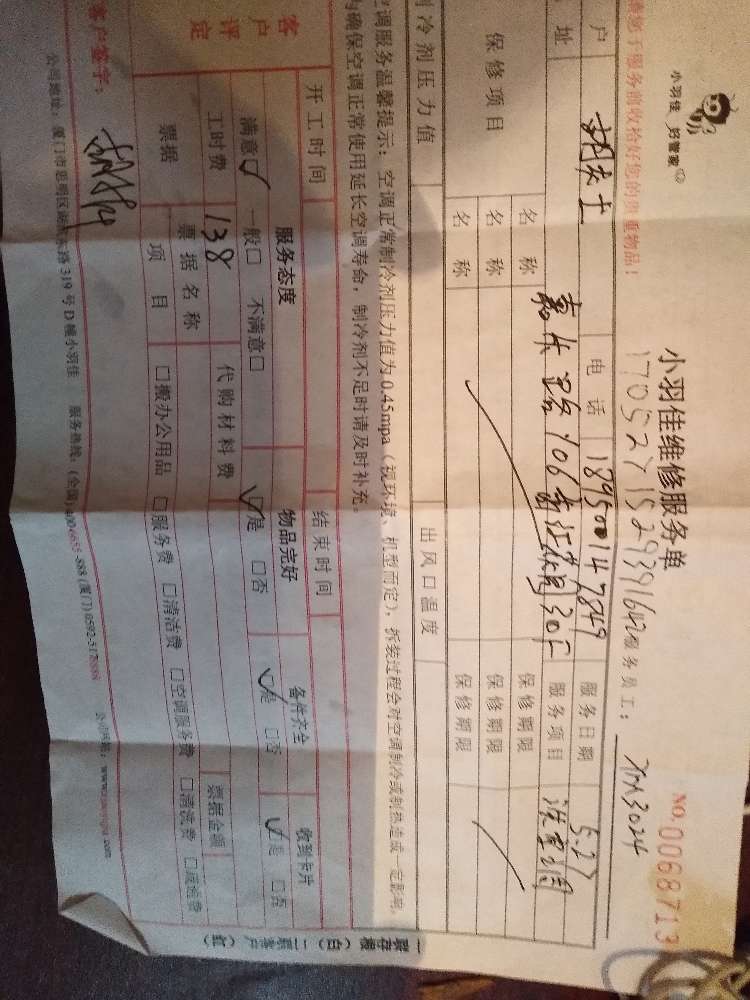 小羽佳 好管家
小羽佳维修服务单
NO.0068713
170527152939164
服务员工： XM3024
请您于服务前收拾好您的贵重物品！
户
电话 189500147849
服务日期 5.27
址
服务项目 洗空调
保修项目
名称
保修期限
名称
保修期限
名称
保修期限
制冷剂压力值
出风口温度
空调服务温馨提示：空调正常制冷剂压力值为0.45mpa（视环境、机型而定），拆装过程会对空调制冷或制热造成一定影响，
为确保空调正常使用延长空调寿命，制冷剂不足时请及时补充。
开工时间
结束时间
客户评定
服务态度
物品完好
备件齐全
收到卡片
满意☑ 一般□ 不满意□
☑是 □否
☑是 □否
☑是 □否
工时费 138
代购材料费
票据
票据名称
票据金额
项目
□搬办公用品 □服务费 □清洁费 □空调服务费 □清洗费
客户签字：
服务热线：
一联存根（白）二联客户（红）